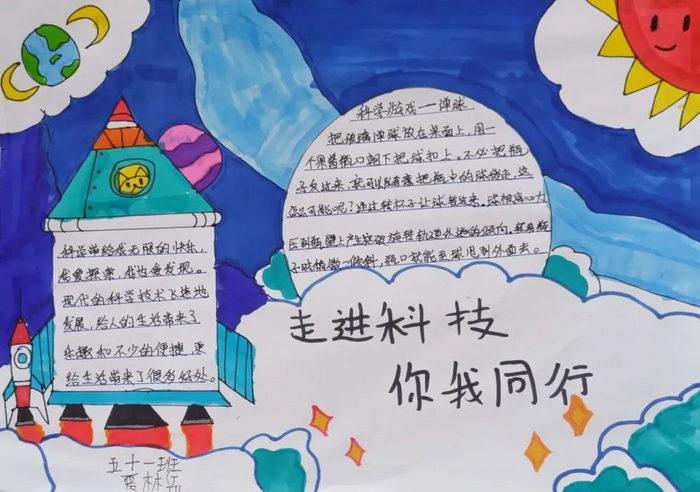 科学游戏一弹球
把玻璃弹球放在桌面上,用一
个果酱瓶口朝下把球扣上。不必把瓶
子反过来,就可以随意把瓶中的球拐走,这
怎么可能呢?通过转杯子让球转起来。球被离心力
压到瓶壁上产生
瓶口就能
科学带给我无限的快乐,
我爱探索,我也爱发现。
现代的科学技术飞速地
发展,给人的生活带来了
乐趣和不少的便捷,更
给生活带来了很多好处。
走进科技
你我同行
五十一班